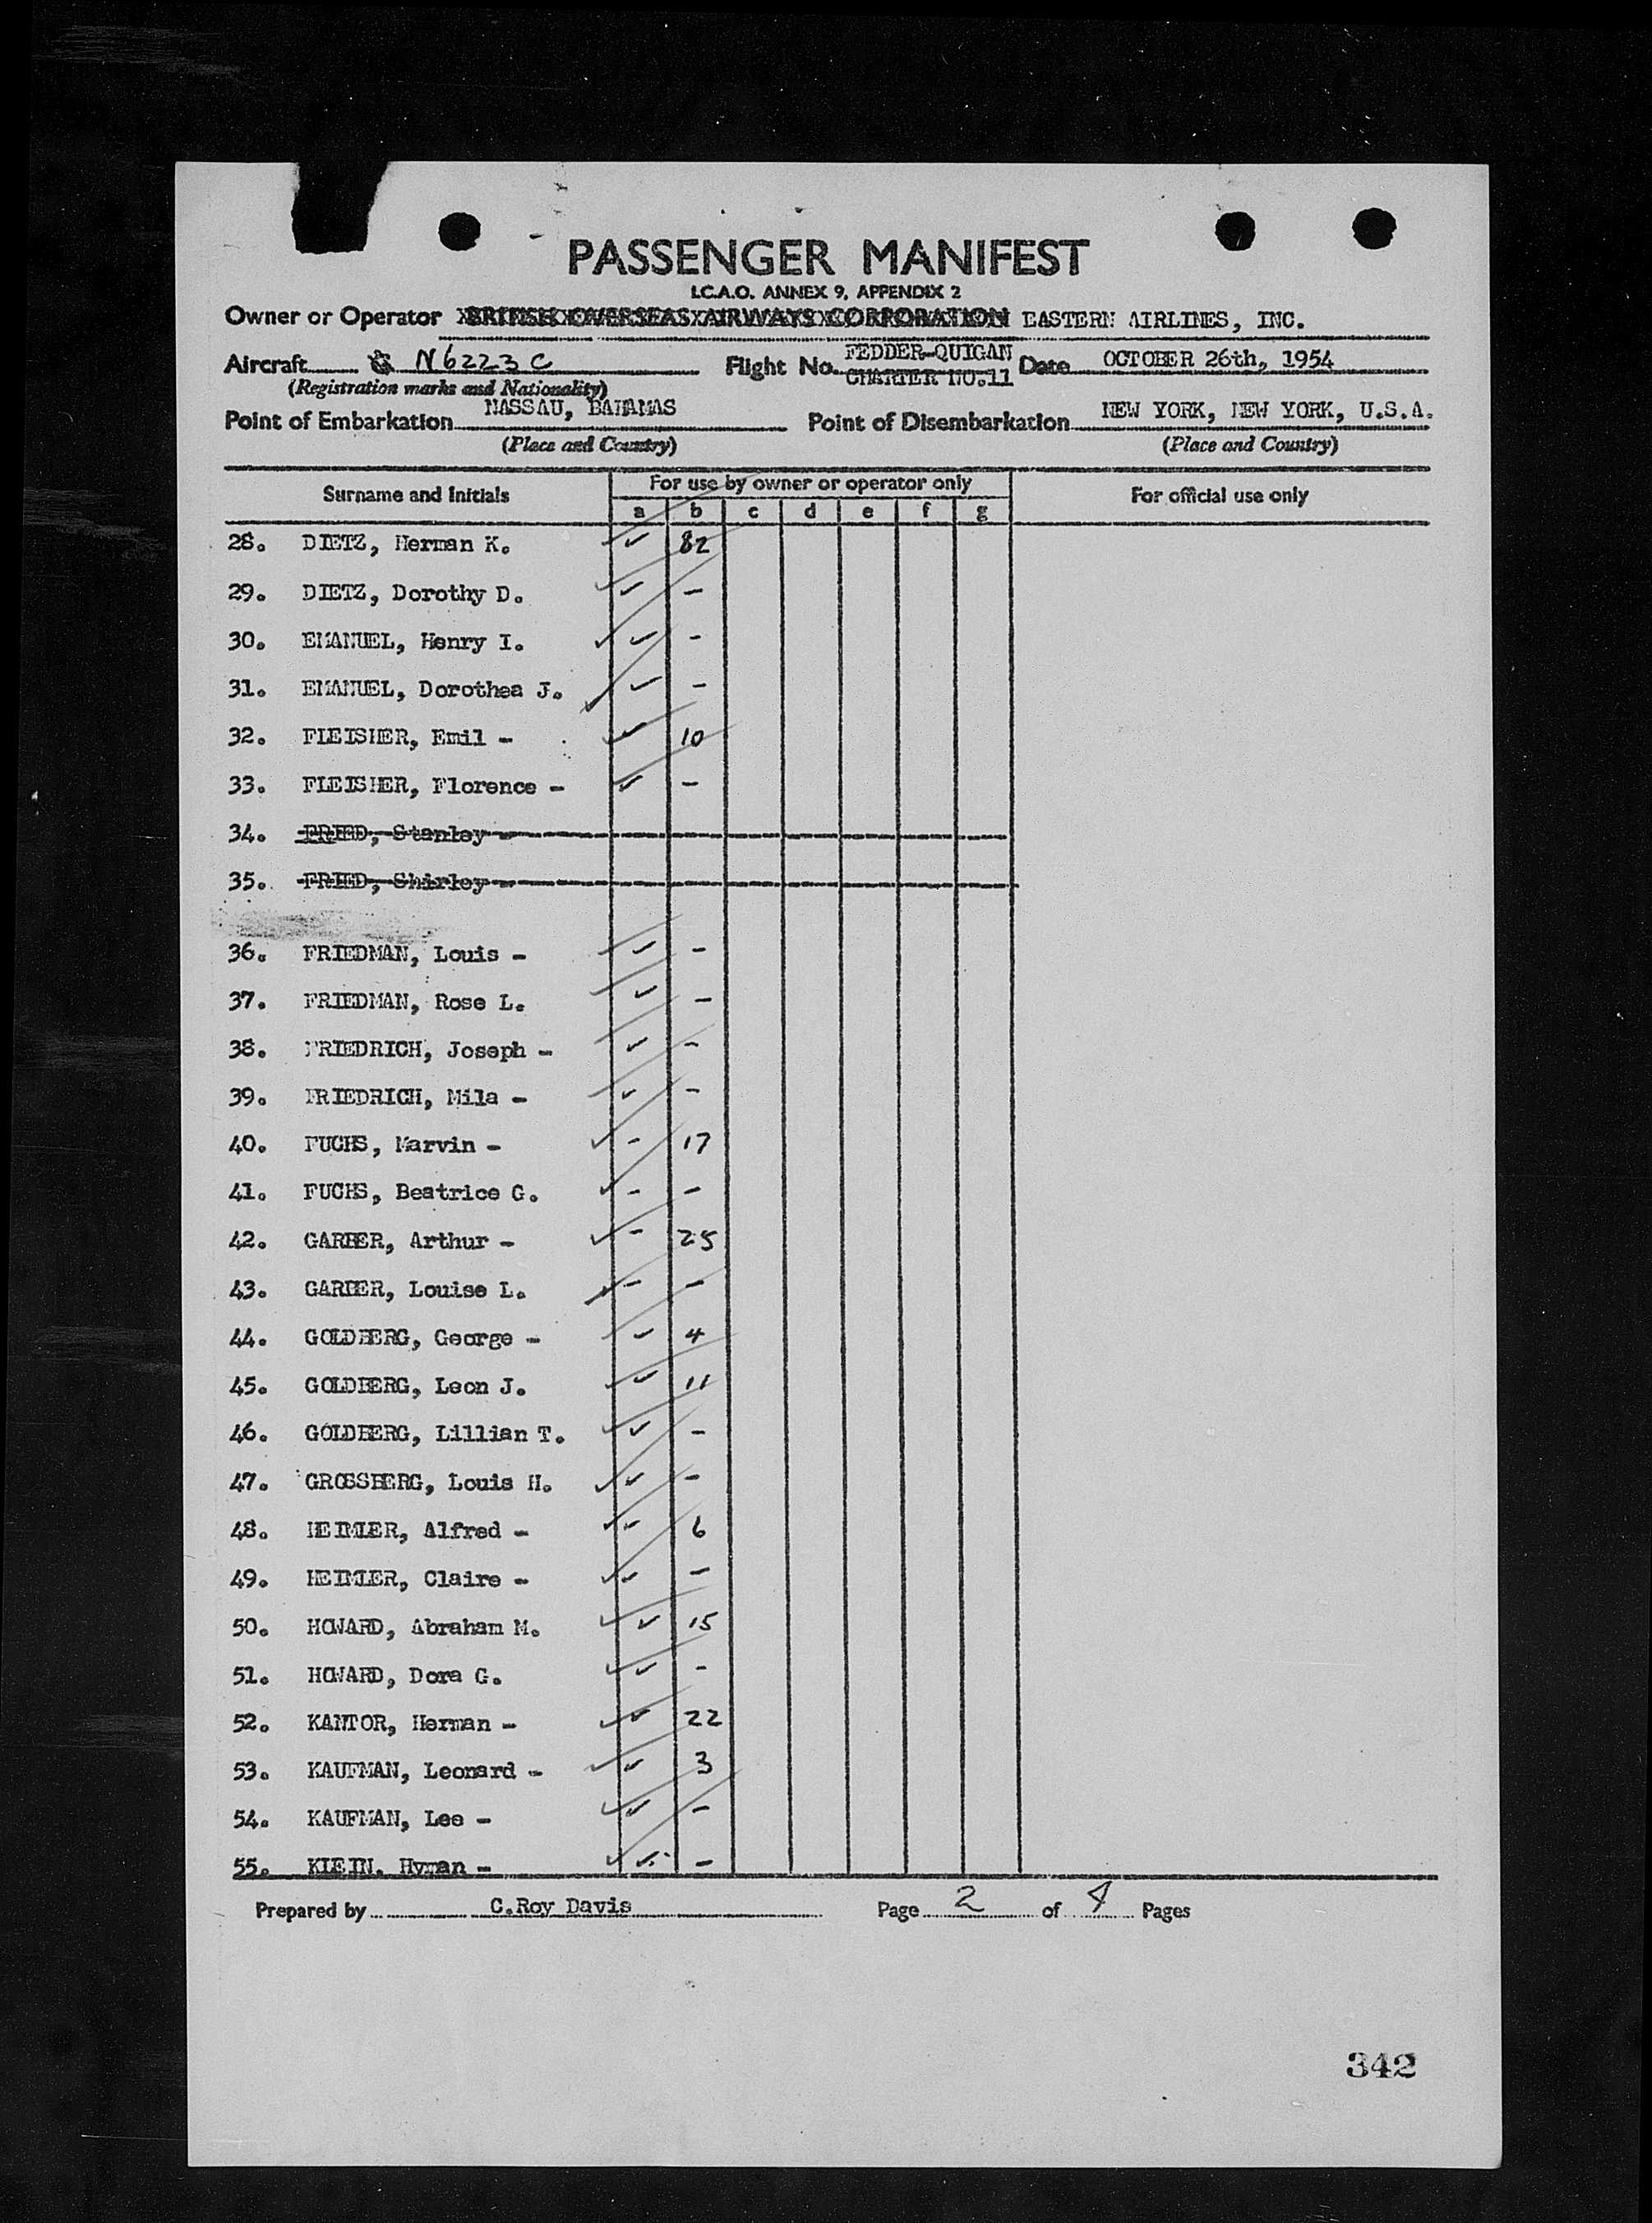 PASSENGER MANIFEST
I.C.A.O. ANNEX 9, APPENDIX 2
Owner or Operator BRITISH OVERSEAS AIRWAYS CORPORATION EASTERN AIRLINES, INC.
Aircraft N6223C Flight No. FEDDER-QUIGAN CHARTER NO.11 Date OCTOBER 26th, 1954
(Registration marks and Nationality)
Point of Embarkation NASSAU, BAHAMAS Point of Disembarkation NEW YORK, NEW YORK, U.S.A.
(Place and Country) (Place and Country)
Surname and Initials For use by owner or operator only For official use only
a b c d e f g
28. DIETZ, Herman K. ✓ 82
29. DIETZ, Dorothy D. ✓ -
30. EMANUEL, Henry I. ✓ -
31. EMANUEL, Dorothea J. ✓ -
32. FLEISHER, Emil - ✓ 10
33. FLEISHER, Florence - ✓ -
34. FRIED, Stanley -
35. FRIED, Shirley -
36. FRIEDMAN, Louis - ✓ -
37. FRIEDMAN, Rose L. ✓ -
38. FRIEDRICH, Joseph - ✓ -
39. FRIEDRICH, Mila - ✓ -
40. FUCHS, Marvin - ✓ - 17
41. FUCHS, Beatrice G. ✓ - -
42. GARBER, Arthur - ✓ - 25
43. GARBER, Louise L. ✓ - -
44. GOLDBERG, George - ✓ 4
45. GOLDBERG, Leon J. ✓ 11
46. GOLDBERG, Lillian T. ✓ -
47. GROSSBERG, Louis H. ✓ -
48. HEIMLER, Alfred - ✓ - 6
49. HEIMLER, Claire - ✓ -
50. HOWARD, Abraham M. ✓ 15
51. HOWARD, Dora G. ✓ -
52. KANTOR, Herman - ✓ 22
53. KAUFMAN, Leonard - ✓ 3
54. KAUFMAN, Lee - ✓ -
55. KLEIN, Hyman - ✓ -
Prepared by C.Roy Davis Page 2 of 4 Pages
342